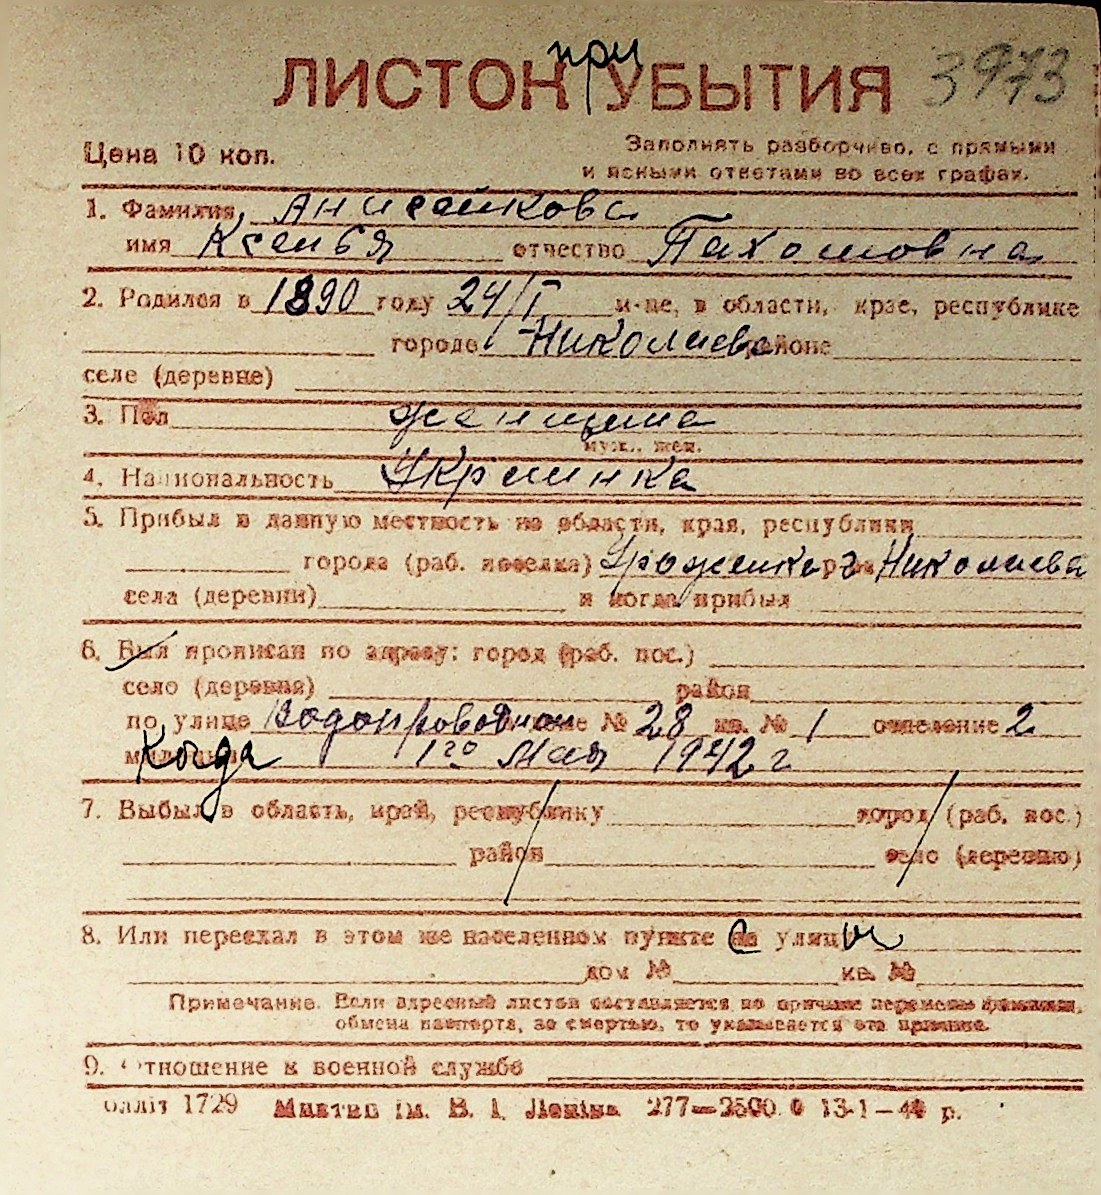 при
ЛИСТОК УБЫТИЯ 3973
Цена 10 коп.
Заполнять разборчиво, с прямыми
и ясными ответами во всех графах.
1. Фамилия Анисейкова
имя Ксенья отчество Пахомовна
2. Родился в 1890 году 24/I м-це, в области, крае, республике
городе Николаеве районе
селе (деревне)
3. Пол женщина
муж., жен.
4. Национальность Украинка
5. Прибыл в данную местность из области, края, республики
города (раб. поселка) Уроженка г Николаева
села (деревни) и когда прибыл
6. Был прописан по адресу: город (раб. пос.)
село (деревня) район
по улице Водопроводной доме № 28 кв. № 1 отделение 2
милиции Когда 1го Мая 1942 г
7. Выбыл в область, край, республику город (раб. пос.)
район село (деревню)
8. Или переехал в этом же населенном пункте с улицы
дом № кв. №
Примечание. Если адресный листок составляется по причине перемены фамилии,
обмена паспорта, за смертью, то указывается эта причина.
9. Отношение к военной службе
облліт 1729 Миктип ім. В. І. Леніна 277—2500 13-1—4 р.